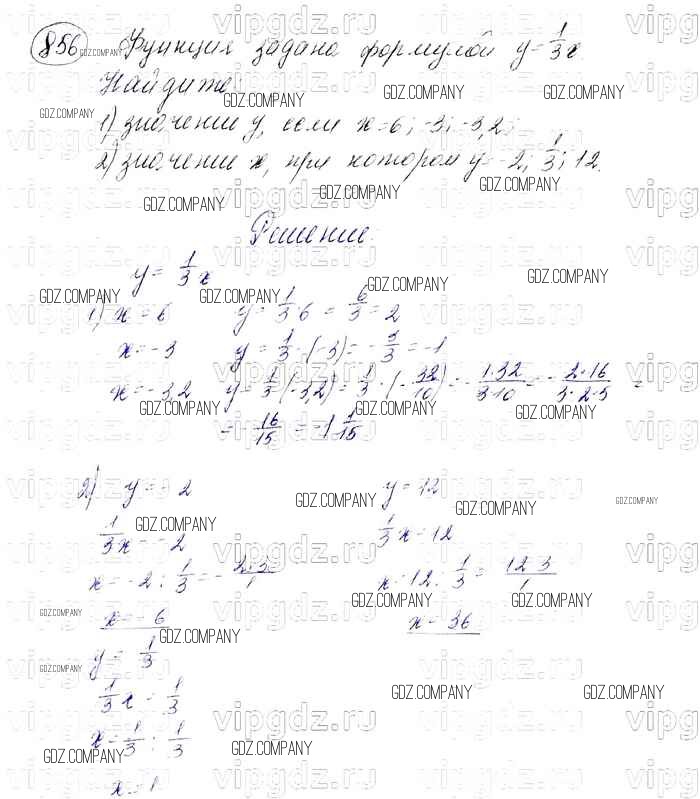 856 Функция задана формулой y = 1/3 x
Найдите:
1) значение y, если x = 6; -3; -3,2;
2) значение x, при котором y = -2; 1/3; 12.
Решение.
y = 1/3 x
1) x = 6 y = 1/3 · 6 = 6/3 = 2
x = -3 y = 1/3 · (-3) = -3/3 = -1
x = -3,2 y = 1/3 · (-3,2) = 1/3 · (-32/10) = -1·32/3·10 = -2·16/3·2·5 =
= -16/15 = -1 1/15
2) y = -2 y = 12
1/3 x = -2 1/3 x = 12
x = -2 : 1/3 = -2·3/1 x = 12 : 1/3 = 12·3/1
x = -6 x = 36
y = 1/3
1/3 x = 1/3
x = 1/3 : 1/3
x = 1
vipgdz.ru
GDZ.COMPANY